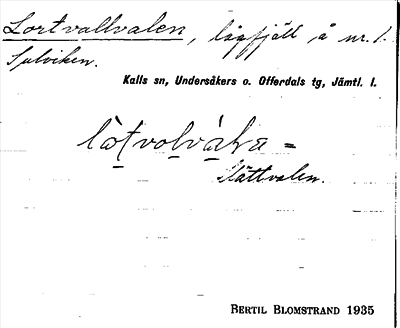 Lortvallvalen, lågfjäll å nr. 1.
Sulviken.
Kalls sn, Undersåkers o. Offerdals tg, Jämtl. l.
=
Slättvalen.
BERTIL BLOMSTRAND 1935